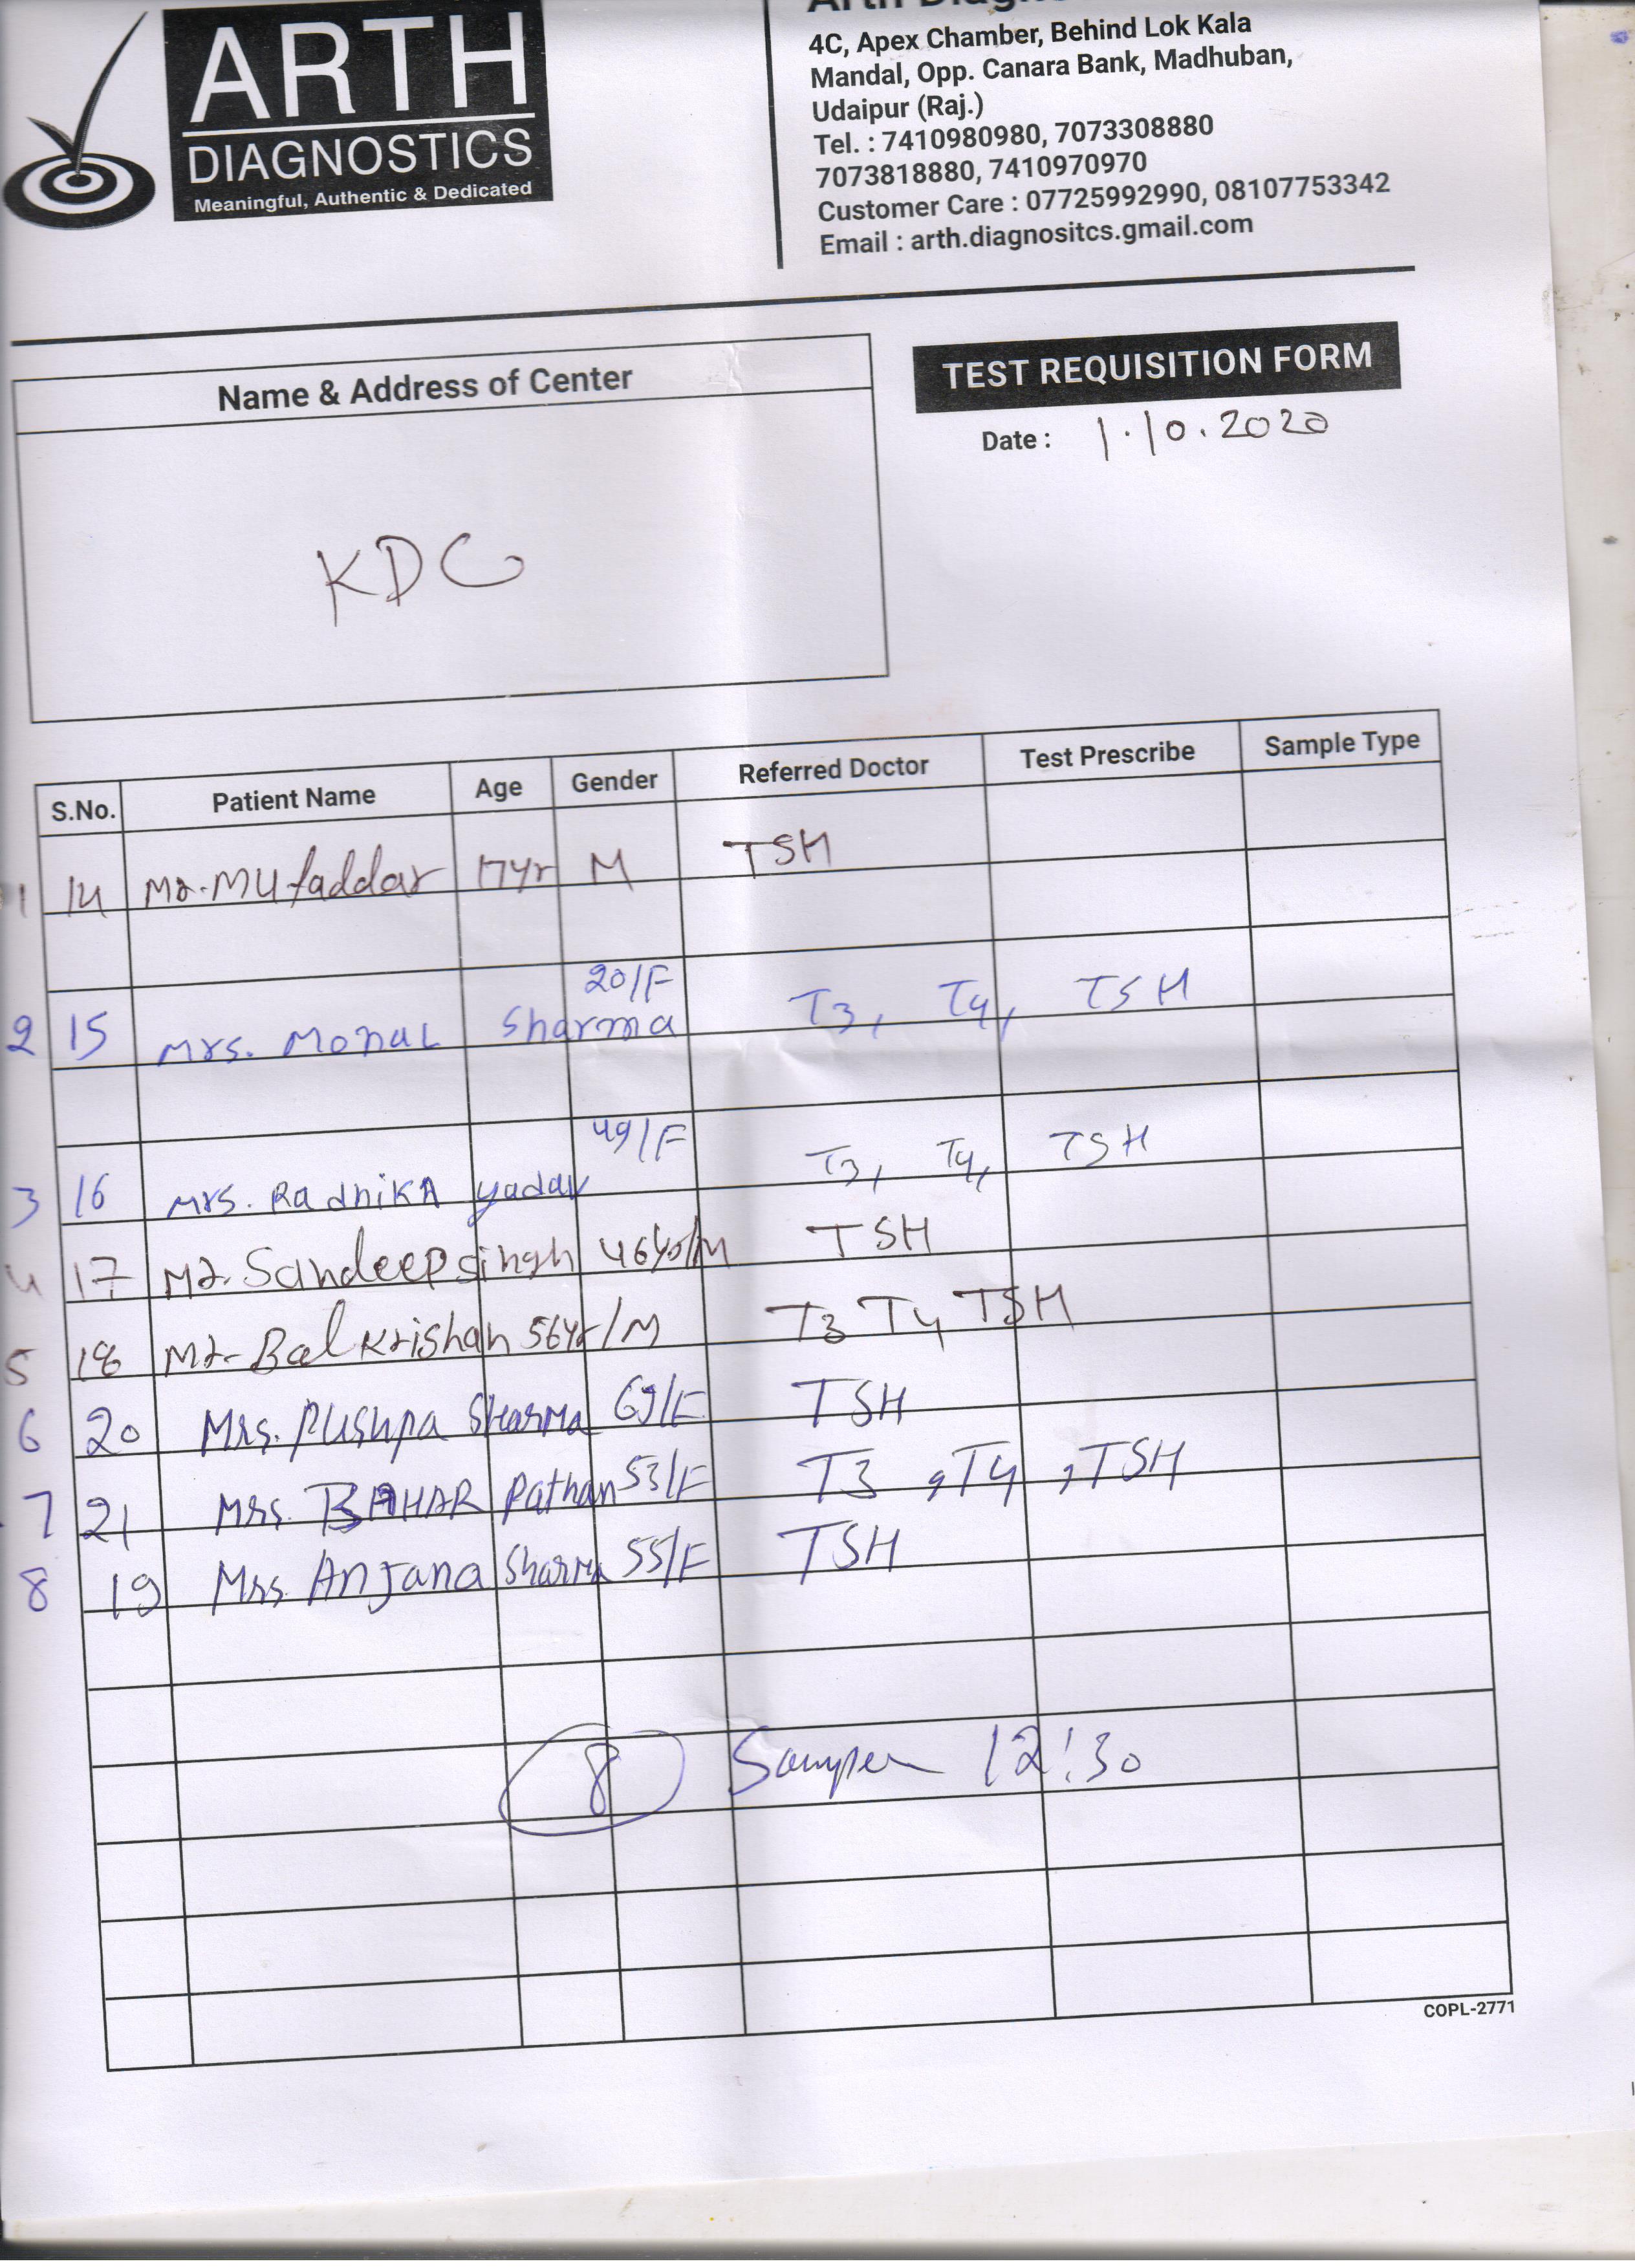 ARTH
DIAGNOSTICS
Meaningful, Authentic & Dedicated
4C, Apex Chamber, Behind Lok Kala
Mandal, Opp. Canara Bank, Madhuban,
Udaipur (Raj.)
Tel. : 7410980980, 7073308880
7073818880, 7410970970
Customer Care : 07725992990, 08107753342
Email : arth.diagnositcs.gmail.com
Name & Address of Center
TEST REQUISITION FORM
Date : 1.10.2020
KDC
S.No. Patient Name Age Gender Referred Doctor Test Prescribe Sample Type
1 14 Mr. Mufaddar 17yr M TSH
20/F
2 15 Mrs. Monal Sharma T3, T4, TSH
49/F
3 16 Mrs. RadhikA yadav T3, T4, TSH
4 17 Mr. Sandeep singh 46yr/M TSH
5 18 Mr. Bal Krishan 56yr/M T3 T4 TSH
6 20 Mrs. Pushpa Sharma 69/F TSH
7 21 Mrs. BAHAR Pathan 53/F T3 , T4 , TSH
8 19 Mrs. Anjana Sharma 55/F TSH
8 12:30
COPL-2771